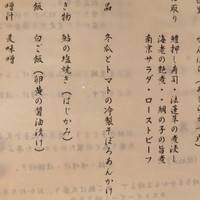 取り
鱧押し寿司・法蓮草の煮浸し
海老の艶煮・・鯛の子の旨煮
南京サラダ・ローストビーフ
品　冬瓜とトマトの冷製そぼろあんかけ
き物　鮎の塩焼き（はじかみ）
ご飯　白ご飯（卵黄の醤油漬け）
噌汁　麦味噌